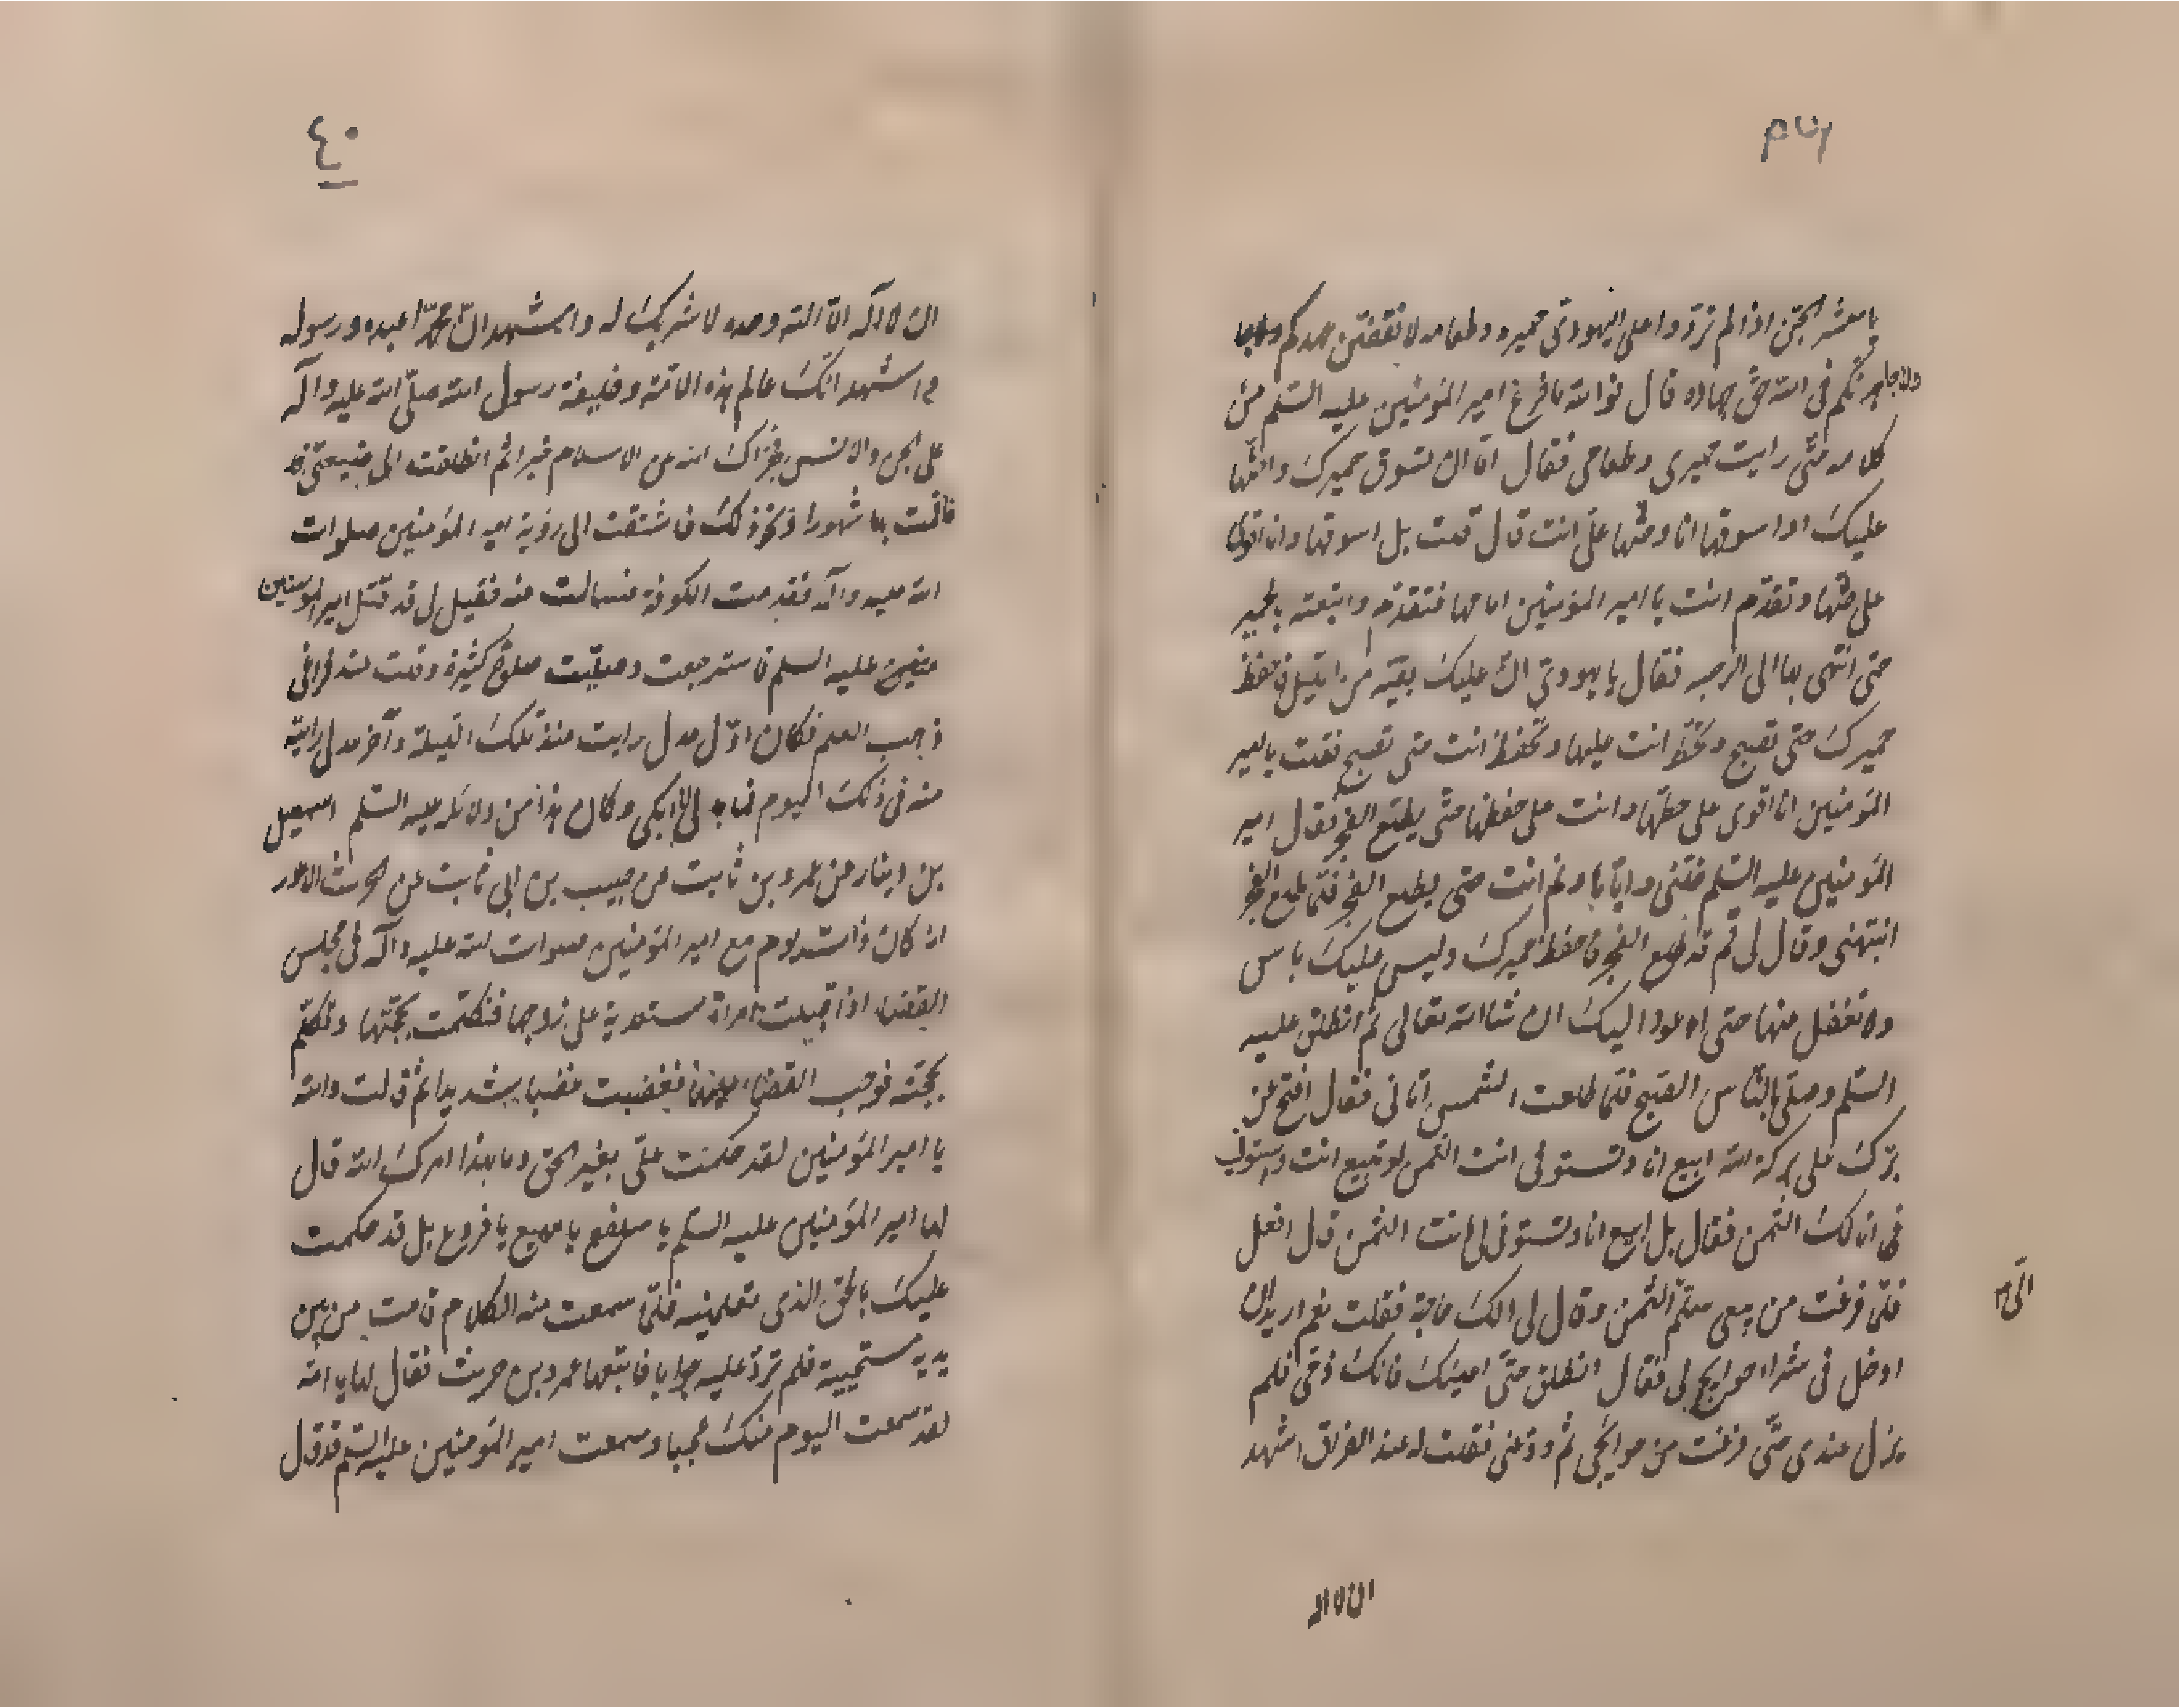 يا معشر الجن اذا لم تردوا على اليهودي حميره وطعامه لانقضن عهدكم
ولاجاهدنكم في الله حق جهاده قال فوالله ما فرغ امير المؤمنين عليه السلم من
كلامه حتى رايت حميرى وطعامي فقال اما ان تسوق حميرك واحثها
عليك او اسوقها انا وحثها علي انت قال قلت بل اسوقها وانا اقوى
على حثها وتقدم انت يا امير المؤمنين امامها فتقدم واتبعته بالحمير
حتى انتهى بها الى الرحبه فقال يا يهودي ان عليك بقية من الليل فاحفظ
حميرك حتى تصبح وتحط انت عليها وتحفظ انت حتى تصبح فقلت يا امير
المؤمنين انا اقوى على حطها وانت على حفظها حتى يطلع الفجر فقال امير
المؤمنين عليه السلم خلني واياها ونم انت حتى يطلع الفجر فلما طلع الفجر
انتبهنى وقال لى قم قد طلع الفجر فاحفظ حميرك وليس عليك باس
ولا تغفل عنها حتى اعود اليك ان شاالله تعالى ثم انطلق عليه
السلم وصلى بالناس الصبح فلما طلعت الشمس اتانى فقال افتح عن
برك على بركة الله ابيع انا وتستوفى انت الثمن او تبيع انت واستوفى
لك الثمن فقال بل ابيع انا وتستوفى لى انت الثمن قال افعل
فلما فرغت من بيعى سلم الثمن وقال لى الك حاجة فقلت نعم اريد ان
ادخل فى شراء حوايج لى فقال انطلق حتى اعينك فانك ذمى فلم
يزل عندى حتى فرغت من حوائجى ثم ودعنى فقلت له عند الفراق اشهد
الى
ان لا اله
٤٠
ان لا اله الا الله وحده لا شريك له واشهد ان محمدا عبده ورسوله
واشهد انك عالم هذه الامة وخليفة رسول الله صلى الله عليه واله
على الجن والانس فجزاك الله عن الاسلام خيرا ثم انطلقت الى ضيعتى
فاقمت بها شهورا او نحو ذلك فاشتقت الى رؤية امير المؤمنين صلوات
الله عليه واله فقدمت الكوفة فسالت عنه فقيل لى قد قتل امير المومنين
عليه السلم فاسترجعت وصليت صلوة كثيرة وقلت عند فراغى
ذهب العلم فكان اول عدل رايت منذ تلك الليلة واخر عدل رايته
منه فى ذلك اليوم فما لى لا ابكى وكان هذا من دلائله عليه السلم اسمعيل
بن دينار عن عمرو بن ثابت عن حبيب بن ابى ثابت عن الحرث الاعور
انه كان ذات يوم مع امير المؤمنين صلوات الله عليه واله فى مجلس
القضاء اذ اقبلت امراة مستعدية على زوجها فتكلمت بحجتها وتكلم
بحجته فوجب القضاء عليها فغضبت غضبا شديدا ثم قالت والله
يا امير المؤمنين لقد حكمت علي بغير الحق وما بهذا امرك الله قال
لها امير المؤمنين عليه السلم يا سلفع يا مهيع يا قروع بل قد حكمت
عليك بالحق الذى تعلمينه فلما سمعت منه الكلام قامت من بين
يديه مستحيية فلم ترد عليه جوابا فاتبعها عمرو بن حريث فقال لها يا امة
لقد سمعت اليوم منك عجبا وسمعت امير المؤمنين عليه السلم قد قال